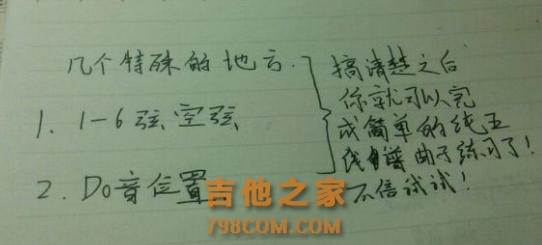 几个特殊的地方.
1. 1-6弦空弦
2. Do音位置
搞清楚之后
你就可以完
成简单的纯五
线谱曲子练习了!
不信试试!
吉他之家
798COM.COM